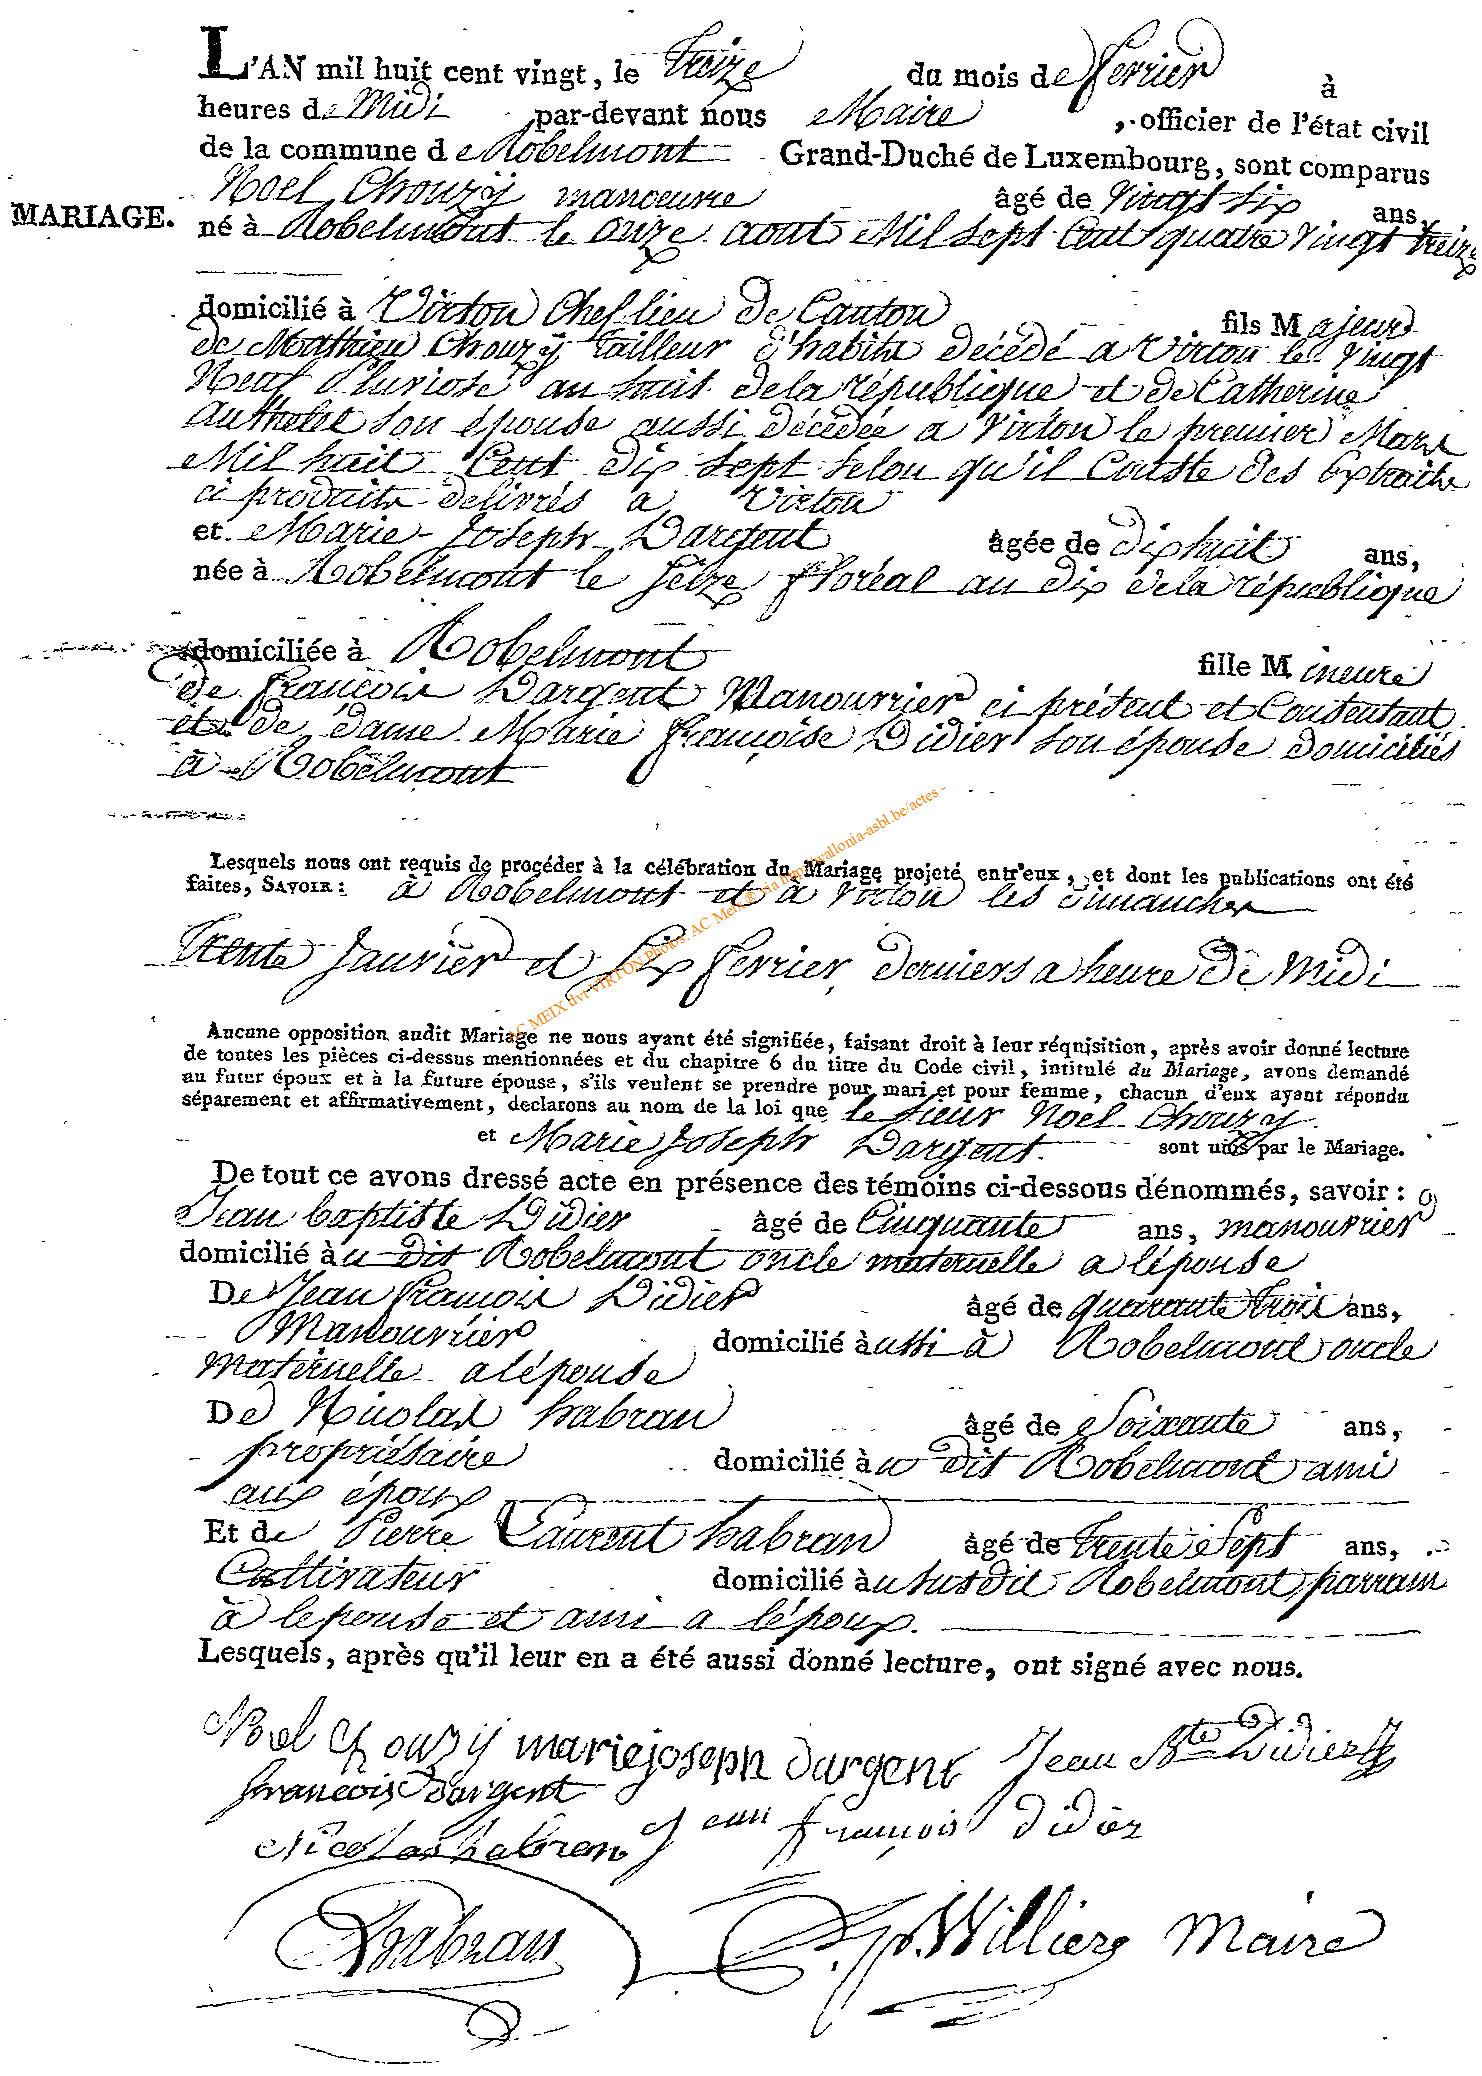 L'AN mil huit cent vingt, le Treize du mois de fevrier à
heures de Midi par-devant nous Maire , officier de l'état civil
de la commune de Robelmont Grand-Duché de Luxembourg, sont comparus
Noel Chouzÿ manoeuvre âgé de vingt six ans,
MARIAGE.
né à Robelmont le onze aout Mil Sept Cent quatre vingt treize
domicilié à Virton Chef lieu de Canton fils Majeur
de Mathieu Chouzÿ Tailleur d'habits décédé a Virton le vingt
Neuf Pluviose an huit de la république et de Catherine
Authelet son épouse aussi décédée a Virton le premier Mars
Mil huit Cent dix Sept selon qu'il Conste des Extraits
ci produits delivrés a Virton
et Marie-Joseph Dargent âgée de dix huit ans,
née à Robelmont le Seize floréal an dix de la république
domiciliée à Robelmont fille Mineure
de françois Dargent Manouvrier ci présent et Consentant
et de dame Marie françoise Didier son épouse domiciliés
à Robelmont
AC MEIX dvt VIRTON Photos: AC Meix via http://wallonia-asbl.be/actes -
Lesquels nous ont requis de procéder à la célébration du Mariage projeté entr'eux, et dont les publications ont été
faites, SAVOIR : à Robelmont et à Virton les dimanches
Trente Janvier et Six fevrier, derniers a heure de Midi
Aucune opposition audit Mariage ne nous ayant été signifiée, faisant droit à leur réquisition, après avoir donné lecture
de toutes les pièces ci-dessus mentionnées et du chapitre 6 du titre du Code civil, intitulé du Mariage, avons demandé
au futur époux et à la future épouse, s'ils veulent se prendre pour mari et pour femme, chacun d'eux ayant répondu
séparement et affirmativement, declarons au nom de la loi que le sieur Noel Chouzy
et Marie Joseph Dargent. sont unis par le Mariage.
De tout ce avons dressé acte en présence des témoins ci-dessous dénommés, savoir :
Jean baptiste Didier âgé de Cinquante ans, manouvrier
domicilié au dit Robelmont oncle maternelle a l'épouse
De Jean françois Didier âgé de quarante trois ans,
Manouvrier domicilié aussi à Robelmont oncle
Maternelle a l'épouse
De Nicolas habran âgé de Soixante ans,
propriétaire domicilié au dit Robelmont ami
aux époux
Et de Pierre Laurent habran âgé de Trente Sept ans,
Cultivateur domicilié au susdit Robelmont, parrain
à lepouse et ami a l'époux.
Lesquels, après qu'il leur en a été aussi donné lecture, ont signé avec nous.
Noel Chouzy marie joseph dargent Jean Bte Didier
francois dargent
Nicolas habran Jean françois didier
habran Willière Maire